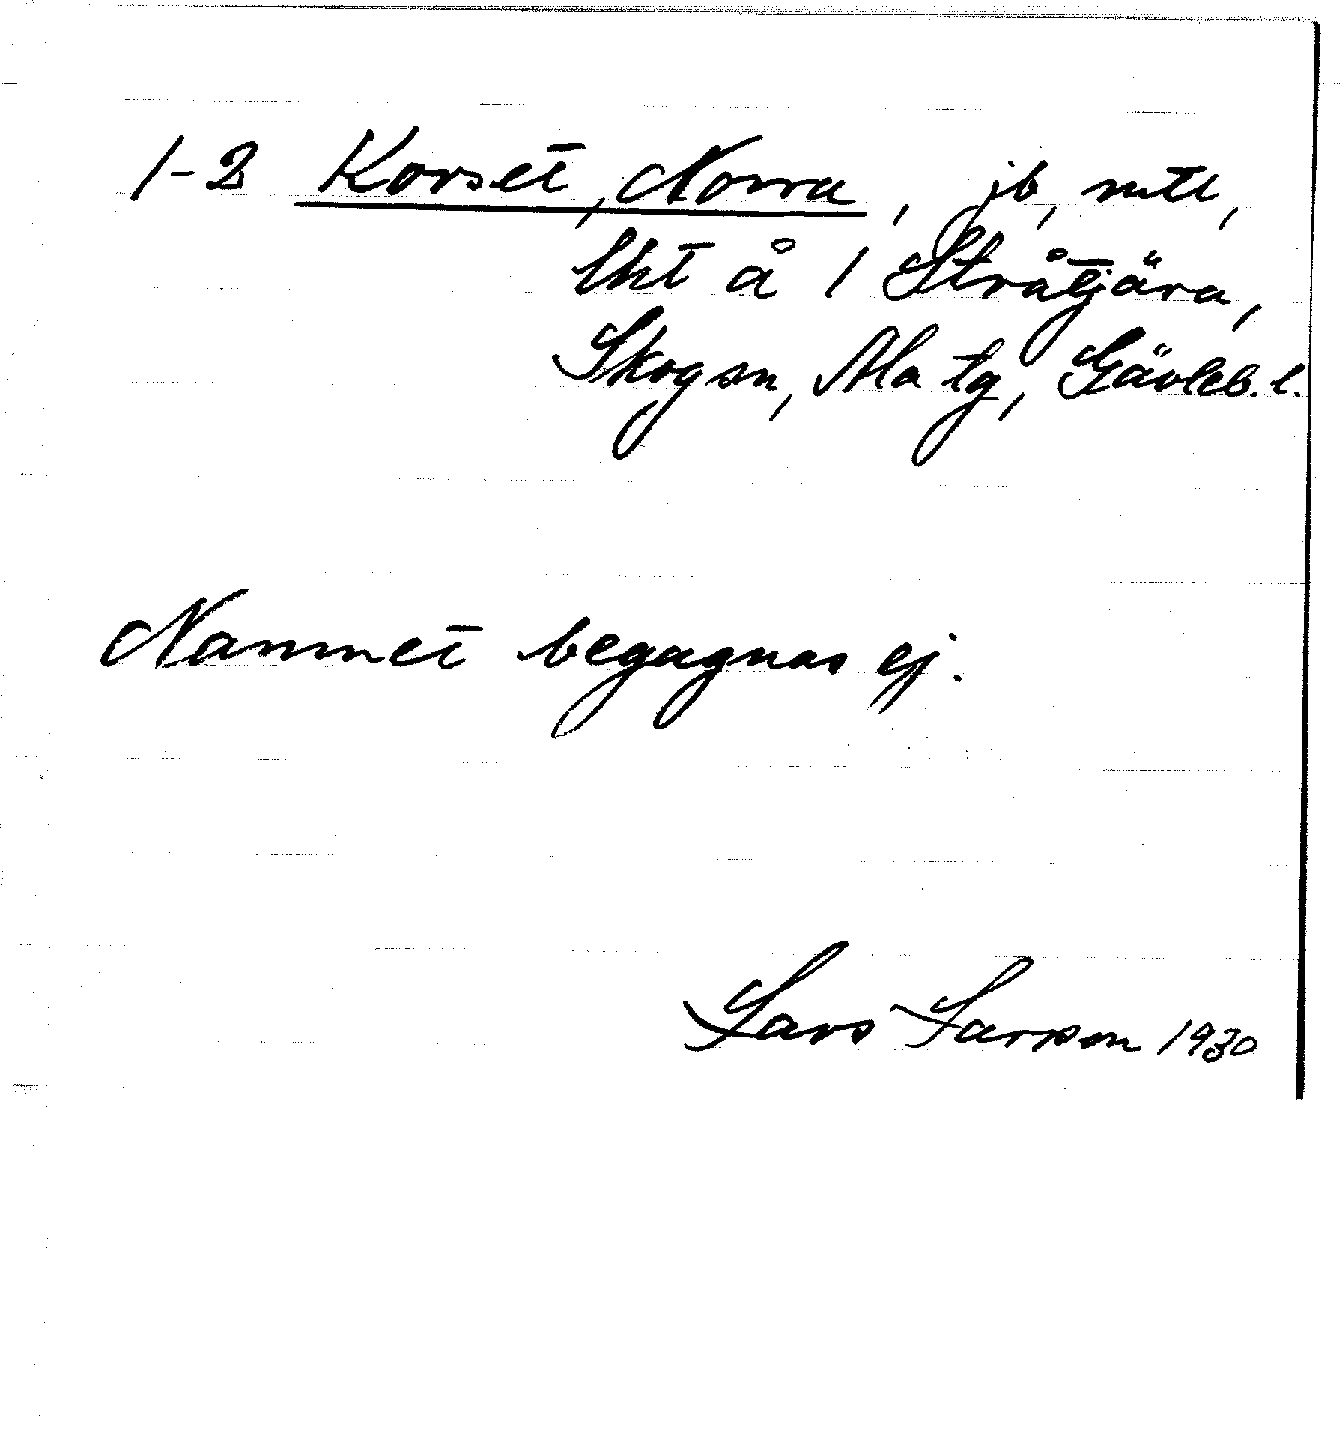 1-2 Korset, Norra, jb, mtl,
lht å 1 Stråtjära,
Skog sn, Ala tg, Gävleb. l.
Namnet begagnas ej.
Lars Larsson 1930